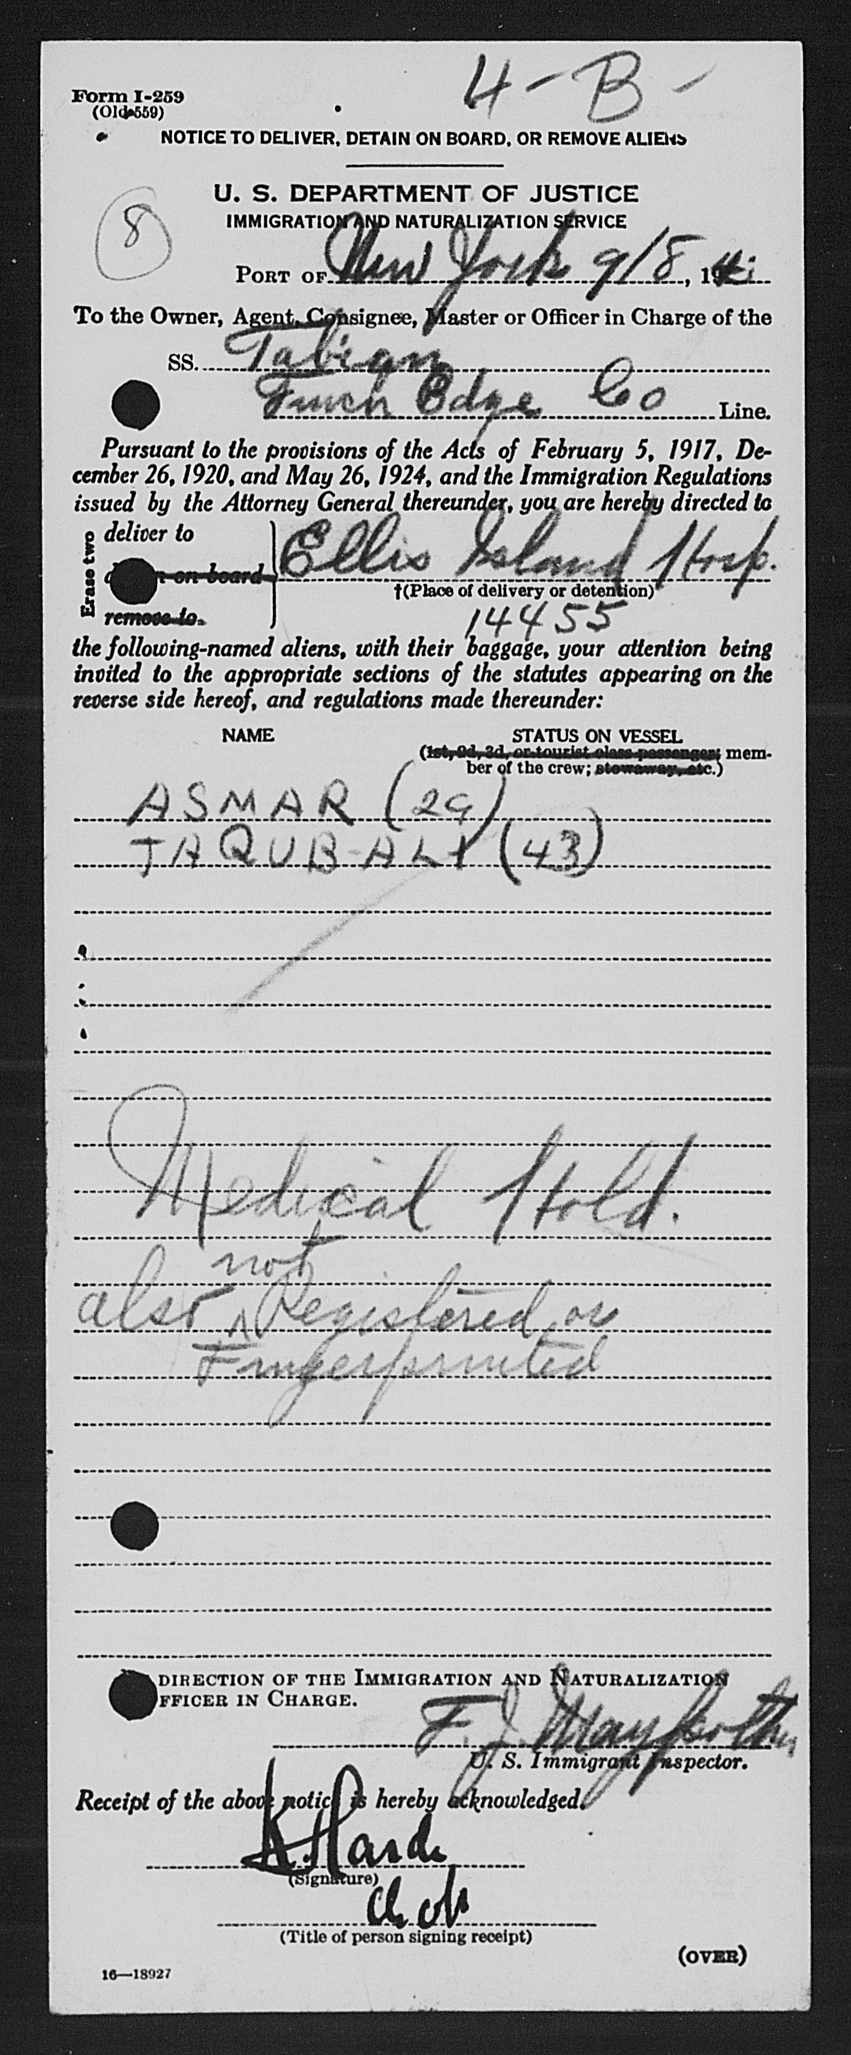 4-B-
Form I-259
(Old 559)
NOTICE TO DELIVER, DETAIN ON BOARD, OR REMOVE ALIENS
U. S. DEPARTMENT OF JUSTICE
IMMIGRATION AND NATURALIZATION SERVICE
8
PORT OF New York 9/8, 194
To the Owner, Agent, Consignee, Master or Officer in Charge of the
SS. Tabian
Edge Co Line.
Pursuant to the provisions of the Acts of February 5, 1917, De-
cember 26, 1920, and May 26, 1924, and the Immigration Regulations
issued by the Attorney General thereunder, you are hereby directed to
Erase two
deliver to
on board
remove to
Ellis Island Hosp.
†(Place of delivery or detention)
14455
the following-named aliens, with their baggage, your attention being
invited to the appropriate sections of the statutes appearing on the
reverse side hereof, and regulations made thereunder:
NAME STATUS ON VESSEL
(1st, 2d, 3d, or tourist class passenger; mem-
ber of the crew; stowaway, etc.)
ASMAR (29)
JAQUB-ALI (43)
Medical Hold.
not
also ^ Registered or
Fingerprinted
DIRECTION OF THE IMMIGRATION AND NATURALIZATION
FFICER IN CHARGE.
F. J.
U. S. Immigrant Inspector.
Receipt of the above notice is hereby acknowledged.
(Signature)
(Title of person signing receipt)
(OVER)
16—18927